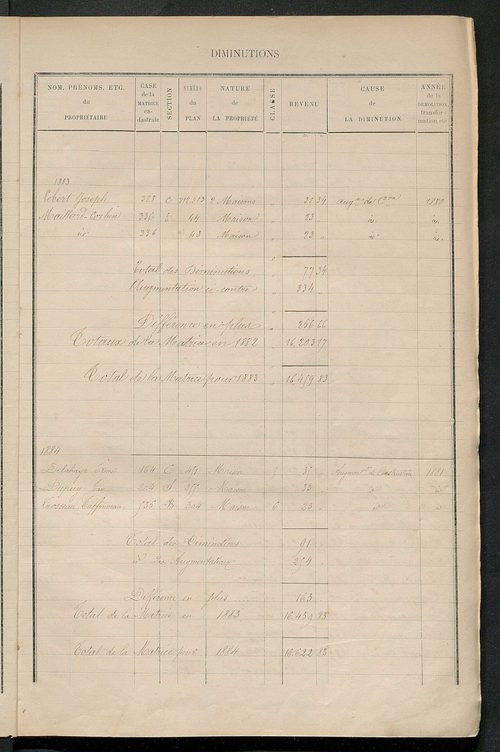 DIMINUTIONS
NOM, PRÉNOMS, ETC. du PROPRIÉTAIRE | CASE de la MATRICE ca-dastrale | SECTION | NUMÉRO du PLAN | NATURE de LA PROPRIÉTÉ | CLASSE | REVENU | CAUSE de LA DIMINUTION | ANNÉE de la DÉMOLITION, transfor-mation, etc.
1883
Joseph 328 C 2 Maisons 30 34 de 1880
336 44 Maison 23 id
id 336 43 Maison 23 id
Total des Diminutions 77 34
Augmentation ci contre 334
Différence en plus 256 66
Totaux de la Matrice en 1882 16.203 17
Total de la Matrice pour 1883 16.459 83
1884
164 C Maison 37 de Construction 1881
Maison 33
B 204 Maison 6 23
Total des Diminutions 91
d° des Augmentations 254
Différence en plus 163
Total de la Matrice en 1883 16.459 83
Total de la Matrice pour 1884 16.622 83